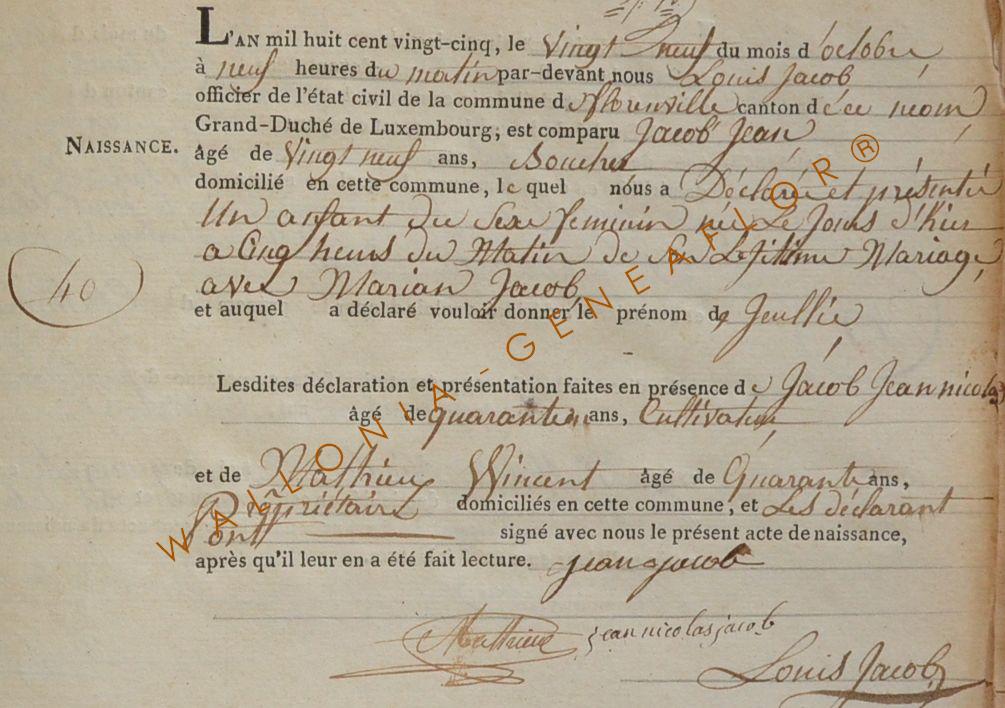 L'AN mil huit cent vingt-cinq, le Vingt neuf du mois d'octobre
à neuf heures du matin par-devant nous Louis Jacob
officier de l'état civil de la commune de florenville canton de ce nom
Grand-Duché de Luxembourg, est comparu Jacob Jean
NAISSANCE.
âgé de Vingt neuf ans, Boucher
domicilié en cette commune, le quel nous a Déclaré et présenté
Un anfant du Sexe feminin né Le Jours d'hier
a Cinq heurs du Matin de Son Lefittime Mariage
40
avec Marian Jacob
et auquel a déclaré vouloir donner le prénom de Jeullie
Lesdites déclaration et présentation faites en présence de Jacob Jean nicolas
âgé de quarante ans, Cultivateur
et de Mathieu Wincent âgé de Quarante ans,
Propriétaire domiciliés en cette commune, et Les déclarant
ont signé avec nous le présent acte de naissance,
après qu'il leur en a été fait lecture. jean jacob
Mathieu jean nicolas jacob
Louis Jacob
WALLONIA-GENEAFLOR®